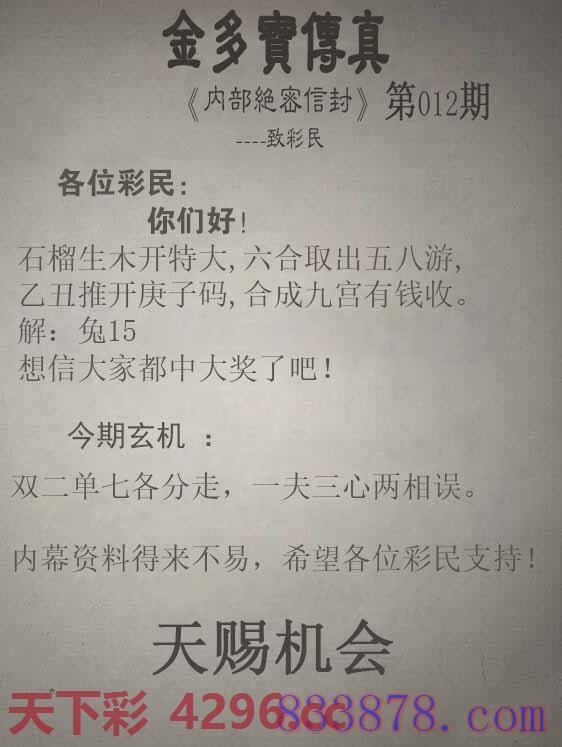 金多寶傳真
《内部絕密信封》第012期
----致彩民
各位彩民:
你们好!
石榴生木开特大,六合取出五八游,
乙丑推开庚子码,合成九宫有钱收。
解：兔15
想信大家都中大奖了吧!
今期玄机 ：
双二单七各分走，一夫三心两相误。
内幕资料得来不易，希望各位彩民支持!
天赐机会
天下彩 4296.cc
883878.com